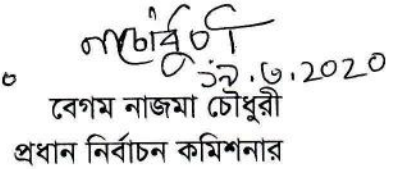 নাচৌধুরী
১৯.৩.2020
বেগম নাজমা চৌধুরী
প্রধান নির্বাচন কমিশনার